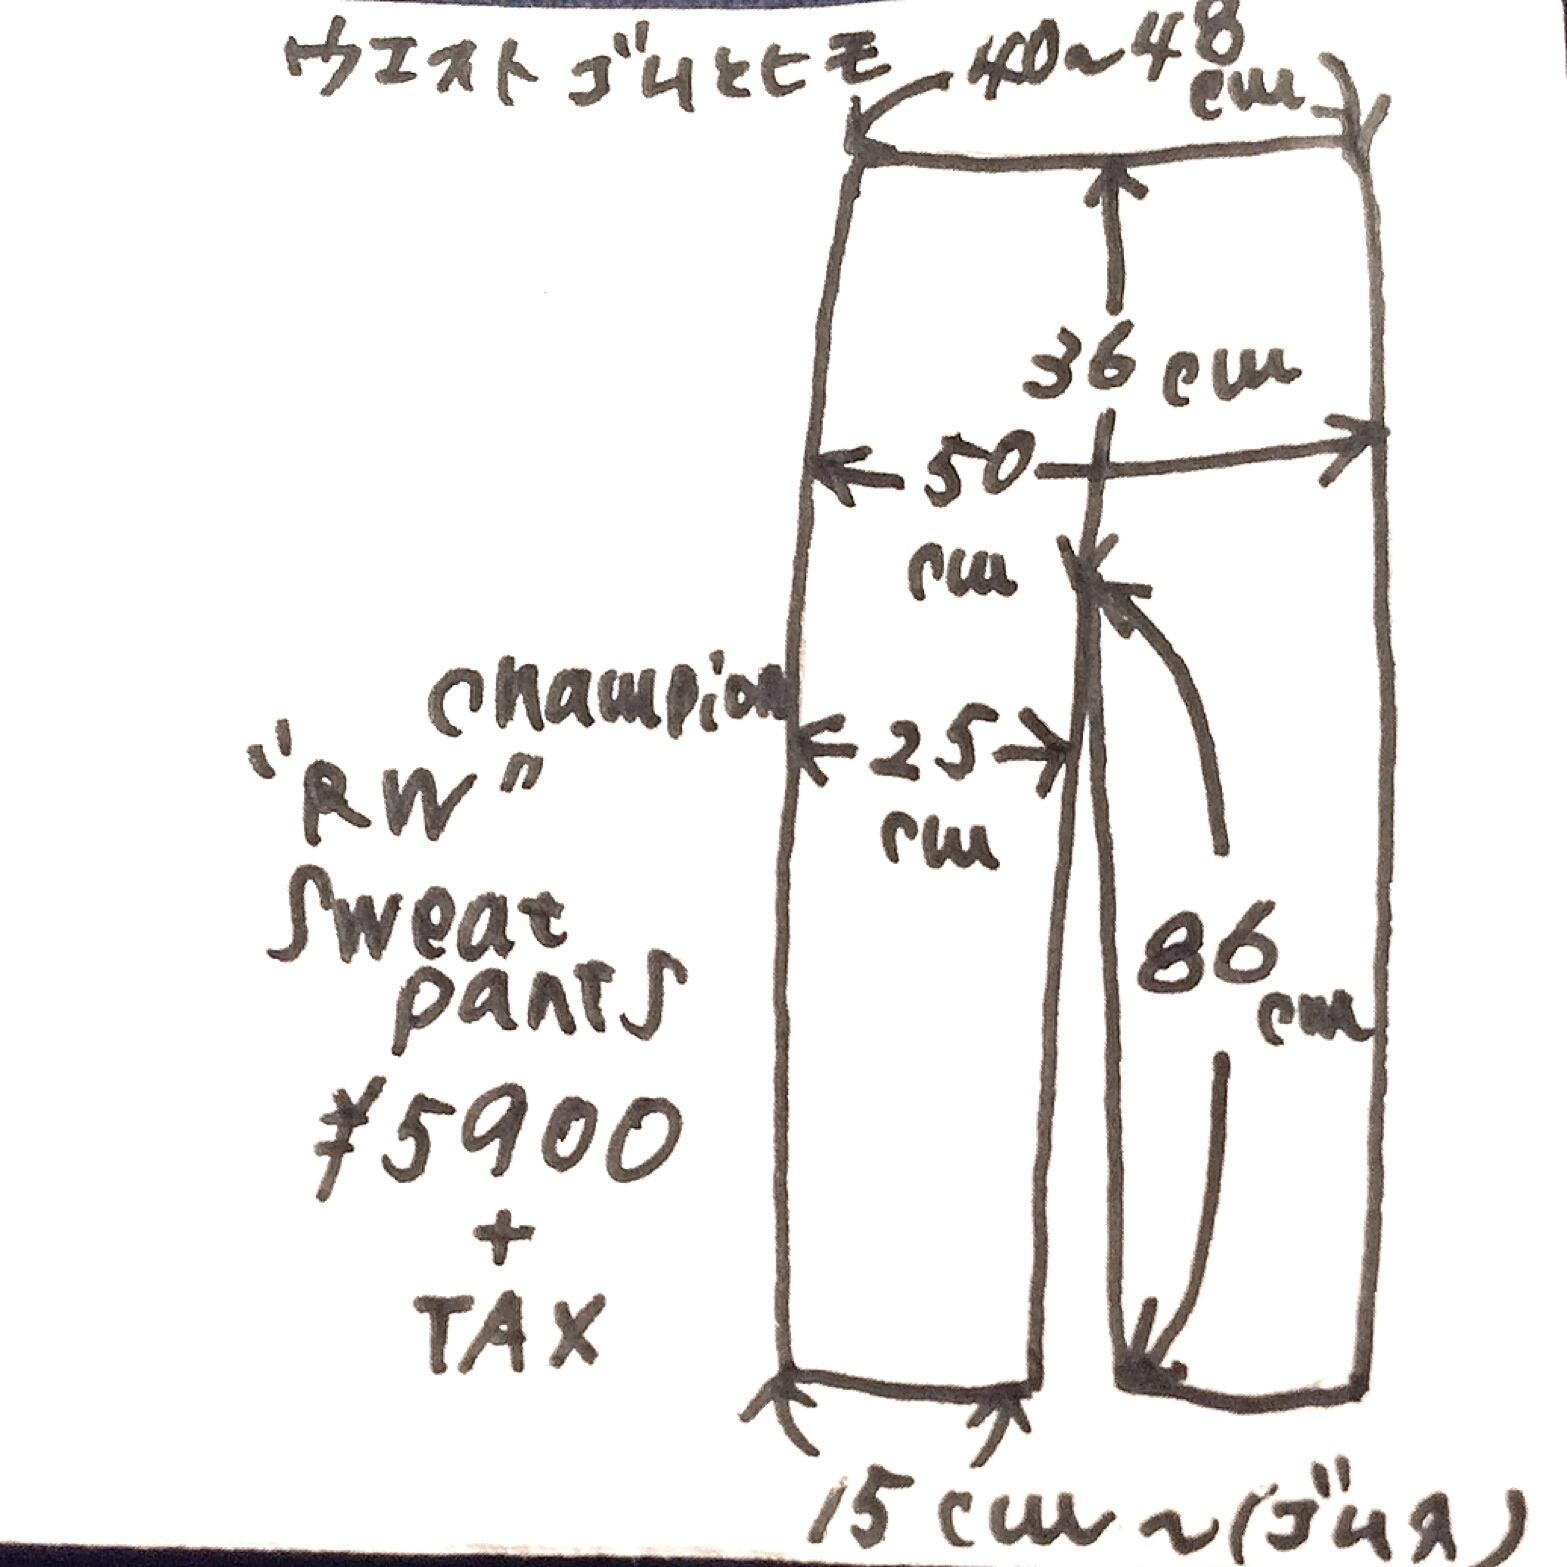 ウエスト ゴムとヒモ 40〜48
cm
36 cm
50
cm
champion
25
cm
"RW"
Sweat
pants
86
cm
¥5900
+
TAX
15 cm〜(ゴム入)